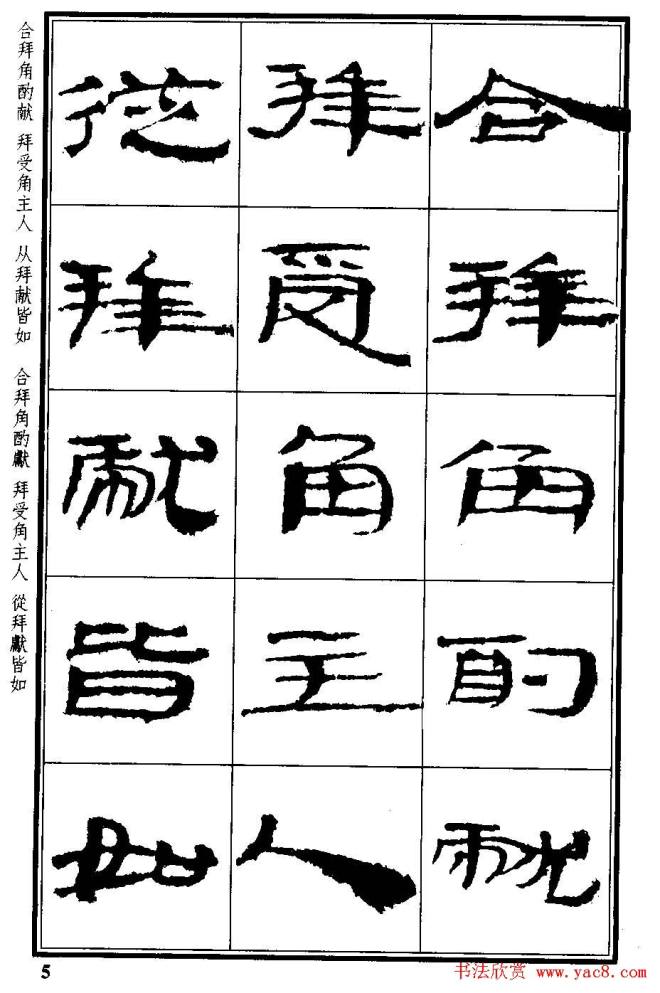 合拜角酌獻
拜受角主人
從拜獻皆如
合拜角酌献 拜受角主人 从拜献皆如 合拜角酌獻 拜受角主人 從拜獻皆如
5
书法欣赏 www.yac8.com